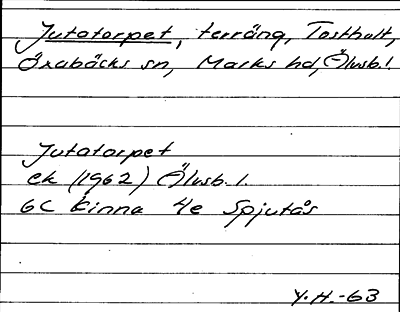 Jutatorpet, terräng, Tostholt,
Öxabäcks sn, Marks hd, Älvsb.l.
Jutatorpet
ek (1962) Älvsb.l.
6C Kinna 4e Spjutås
Y.H.-63